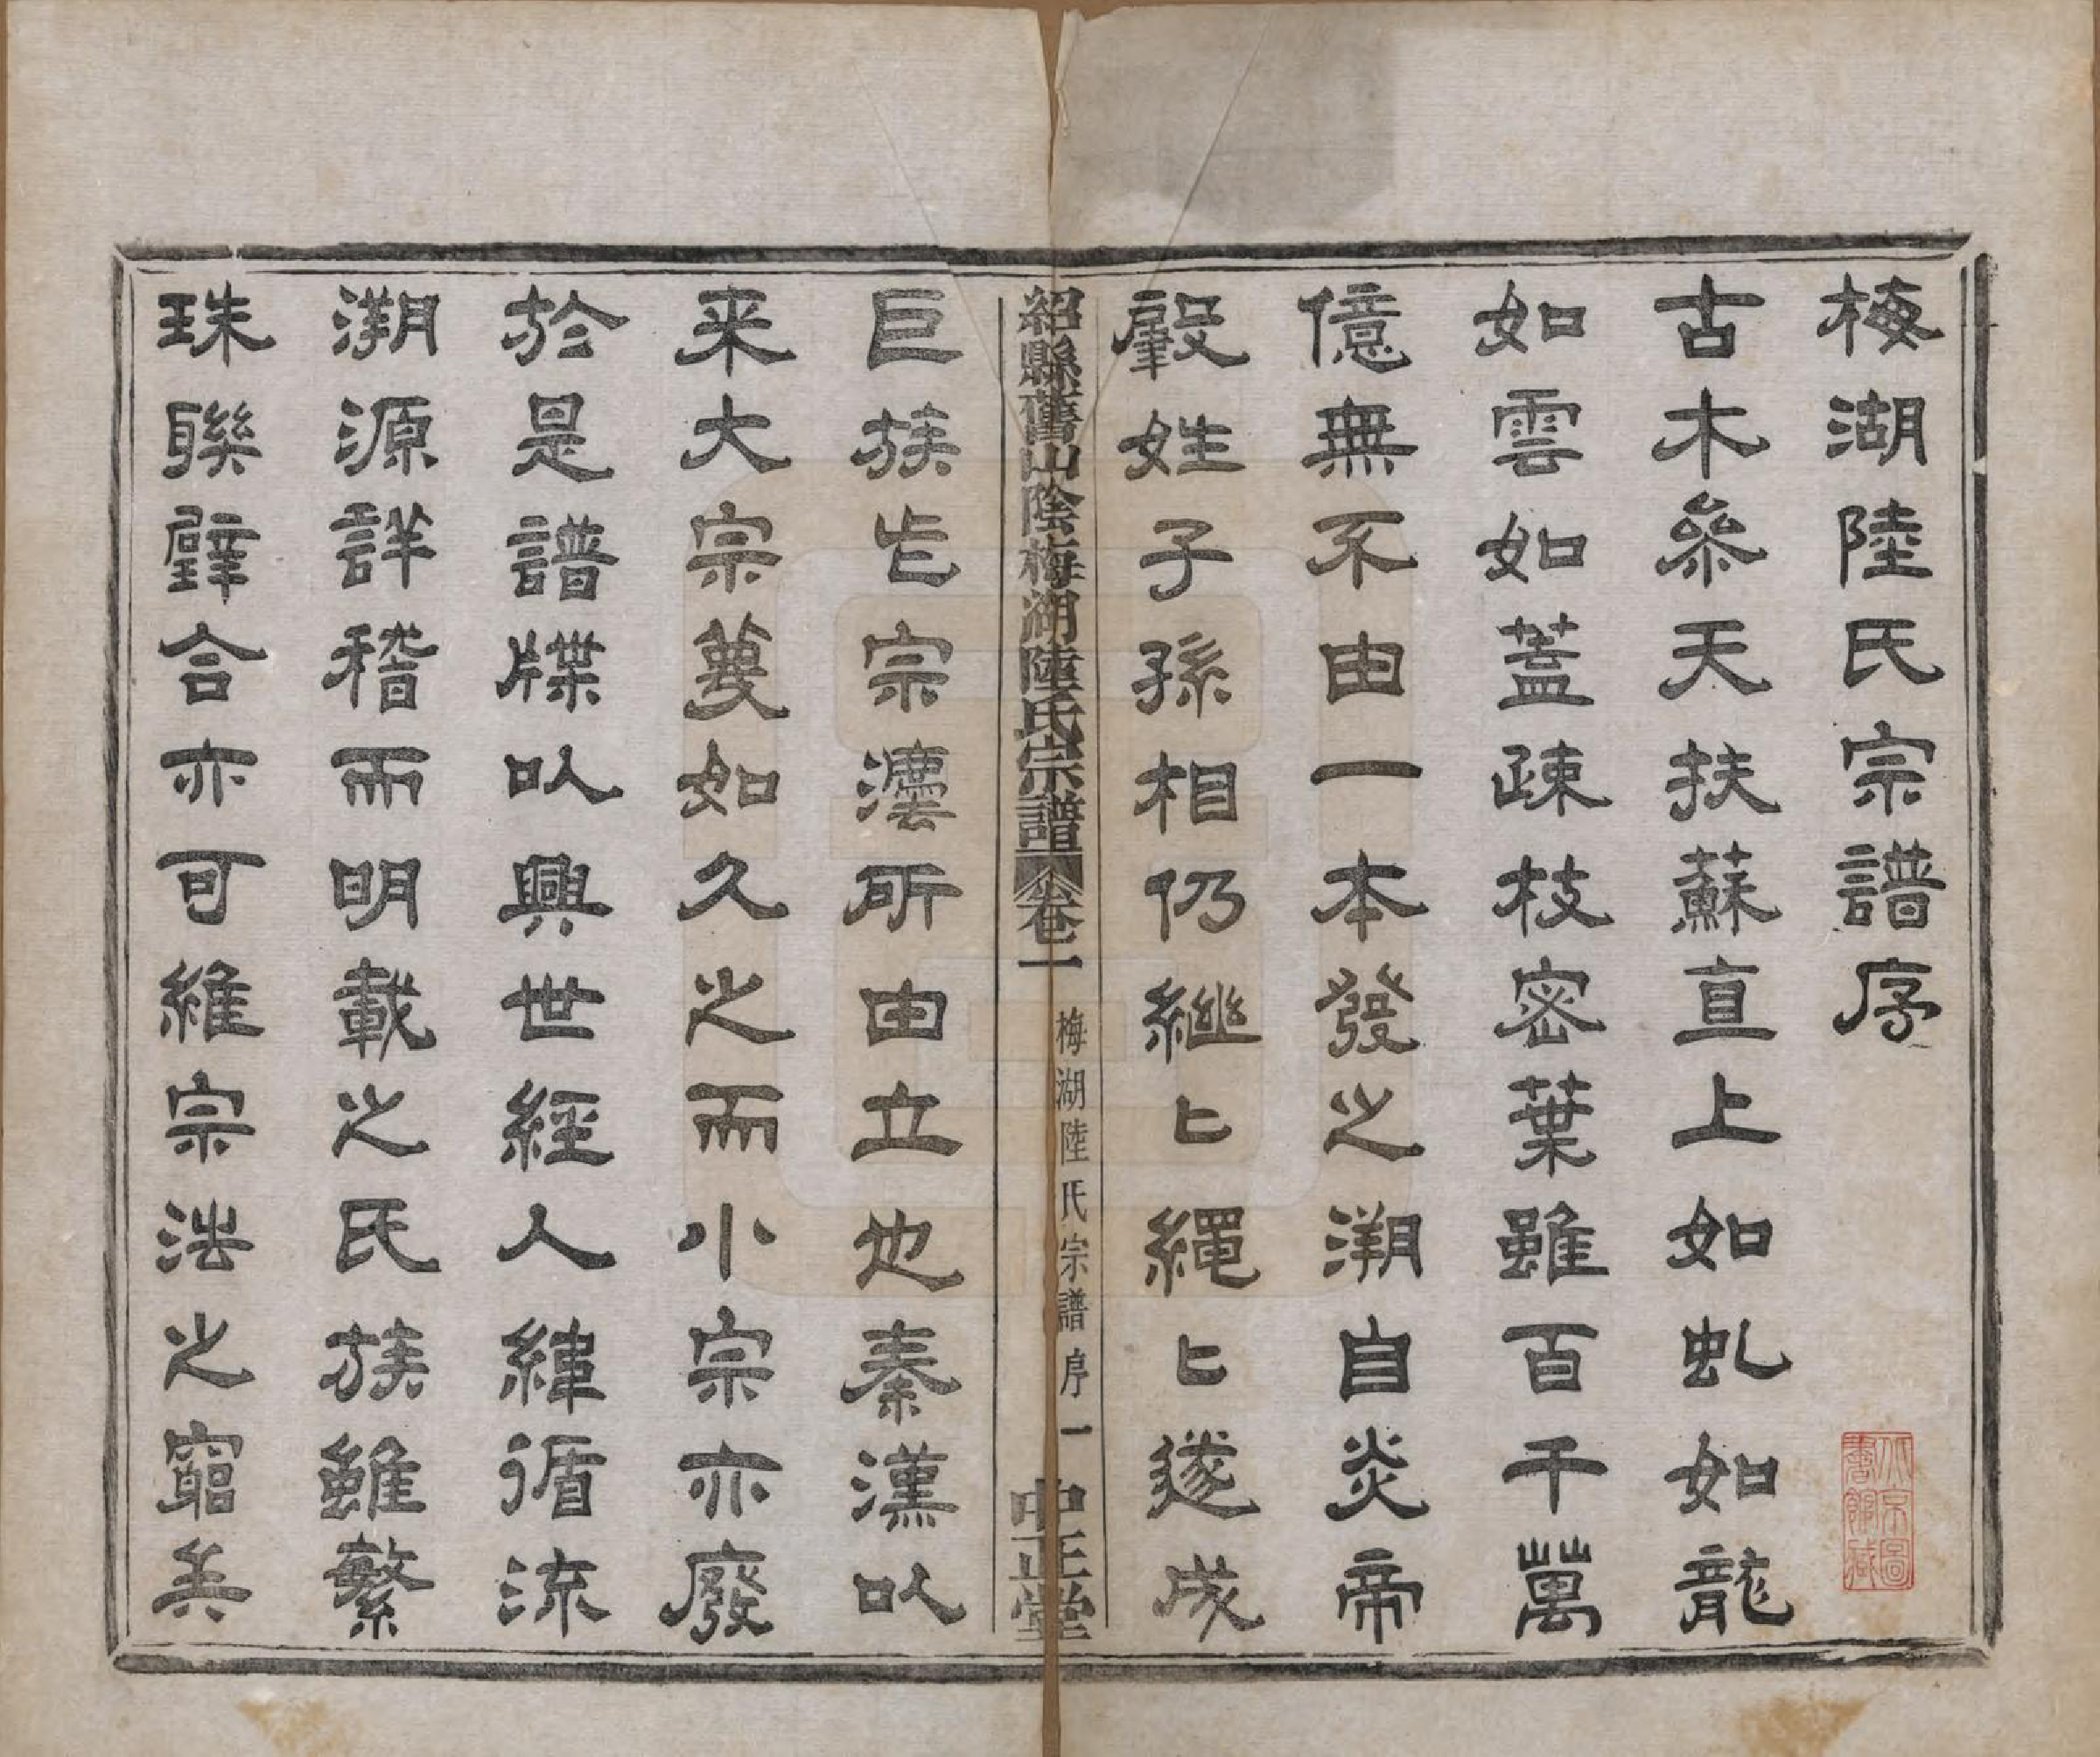 梅湖陸氏宗譜序
古木叅天扶蘇直上如虬如龍
如雲如蓋疎枝密葉雖百千萬
億無不由一本發之溯自炎帝
肇姓子孫相仍継匕繩匕遂成
紹縣舊山陰梅湖陸氏宗譜 卷一 梅湖陸氏宗譜序 一 中正堂
巨族㞢宗灋所由立也秦漢以
来大宗蔑如久之而小宗亦廢
於是譜牒以興世經人緯循流
溯源詳稽而明載之氏族雖繁
珠聯璧合亦可維宗法之窮矣
北京圖書館藏